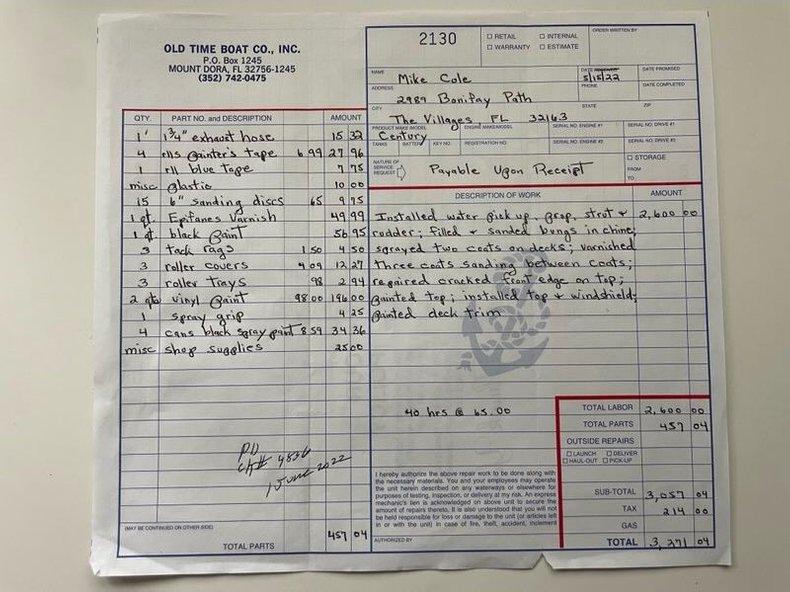 OLD TIME BOAT CO., INC.
P.O. Box 1245
MOUNT DORA, FL 32756-1245
(352) 742-0475
2130
RETAIL INTERNAL
WARRANTY ESTIMATE
ORDER WRITTEN BY
NAME Mike Cole
DATE RECEIVED 5/15/22
DATE PROMISED
ADDRESS 2989 Bonifay Path
PHONE
DATE COMPLETED
CITY The Villages FL 32163
STATE
ZIP
PRODUCT MAKE/MODEL Century
ENGINE MAKE/MODEL
SERIAL NO. ENGINE #1
SERIAL NO. DRIVE #1
TANKS
BATTERY
KEY NO.
REGISTRATION NO.
SERIAL NO. ENGINE #2
SERIAL NO. DRIVE #2
NATURE OF SERVICE REQUEST Payable Upon Receipt
STORAGE
FROM
TO
QTY. PART NO. and DESCRIPTION AMOUNT
1' 1 3/4" exhaust hose 15 32
4 rlls painter's tape 6.99 27 96
1 rll blue tape 7 75
misc plastic 10 00
15 6" sanding discs 65 9 75
1 qt. Epifanes Varnish 49 99
1 qt. black paint 56 95
3 tack rags 1.50 4 50
3 roller covers 4 09 12 27
3 roller trays 98 2 94
2 qts vinyl paint 98.00 196 00
1 spray grip 4 25
4 cans black spray paint 8 59 34 36
misc shop supplies 25 00
PD
CK# 4836
1 June 2022
(MAY BE CONTINUED ON OTHER SIDE)
TOTAL PARTS 457 04
DESCRIPTION OF WORK AMOUNT
Installed water pick up, prop, strut & 2,600 00
rudder; filled & sanded bungs in chine;
sprayed two coats on decks; varnished
three coats sanding between coats;
repaired cracked front edge on top;
painted top; installed top & windshield;
painted deck trim
40 hrs @ 65.00
I hereby authorize the above repair work to be done along with
the necessary materials. You and your employees may operate
the unit herein described on any waterways or elsewhere for
purposes of testing, inspection, or delivery at my risk. An express
mechanic's lien is acknowledged on above unit to secure the
amount of repairs thereto. It is also understood that you will not
be held responsible for loss or damage to the unit (or articles left
in or with the unit) in case of fire, theft, accident, inclement
AUTHORIZED BY
TOTAL LABOR 2,600 00
TOTAL PARTS 457 04
OUTSIDE REPAIRS
LAUNCH DELIVER
HAUL-OUT PICK-UP
SUB-TOTAL 3,057 04
TAX 214 00
GAS
TOTAL 3,271 04